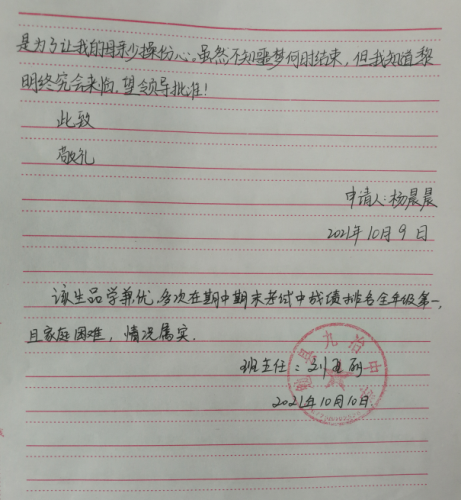 是为了让我的母亲少操份心。虽然不知噩梦何时结束，但我知道黎
明终究会来临，望领导批准！
此致
敬礼
申请人：杨晨晨
2021年10月9日
该生品学兼优，多次在期中期末考试中成绩排名全年级第一，
且家庭困难，情况属实.
班主任：刘
2021年10月10日
县九冶中学